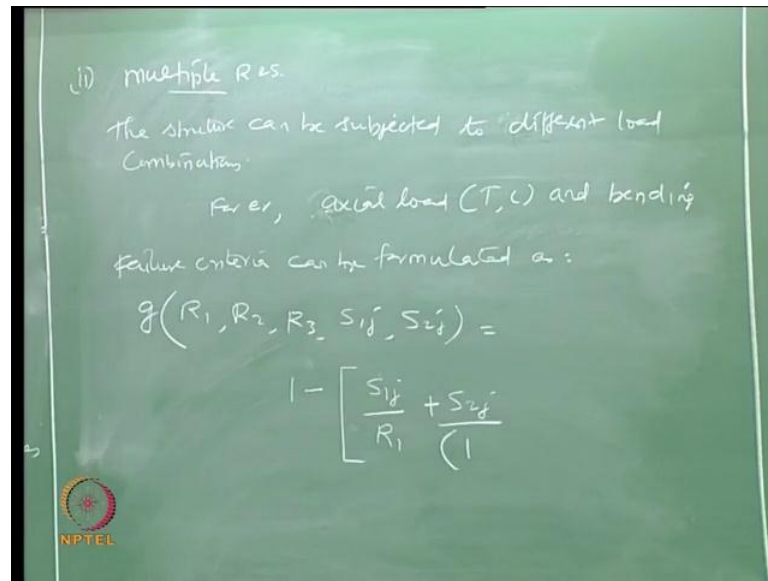 ii) multiple R &S.
The structure can be subjected to different load
Combinations
For ex, axial load (T, C) and bending
failure criteria can be formulated as:
g(R₁, R₂, R₃, S₁ⱼ, S₂ⱼ) =
1 - [ S₁ⱼ/R₁ + S₂ⱼ/(1
NPTEL